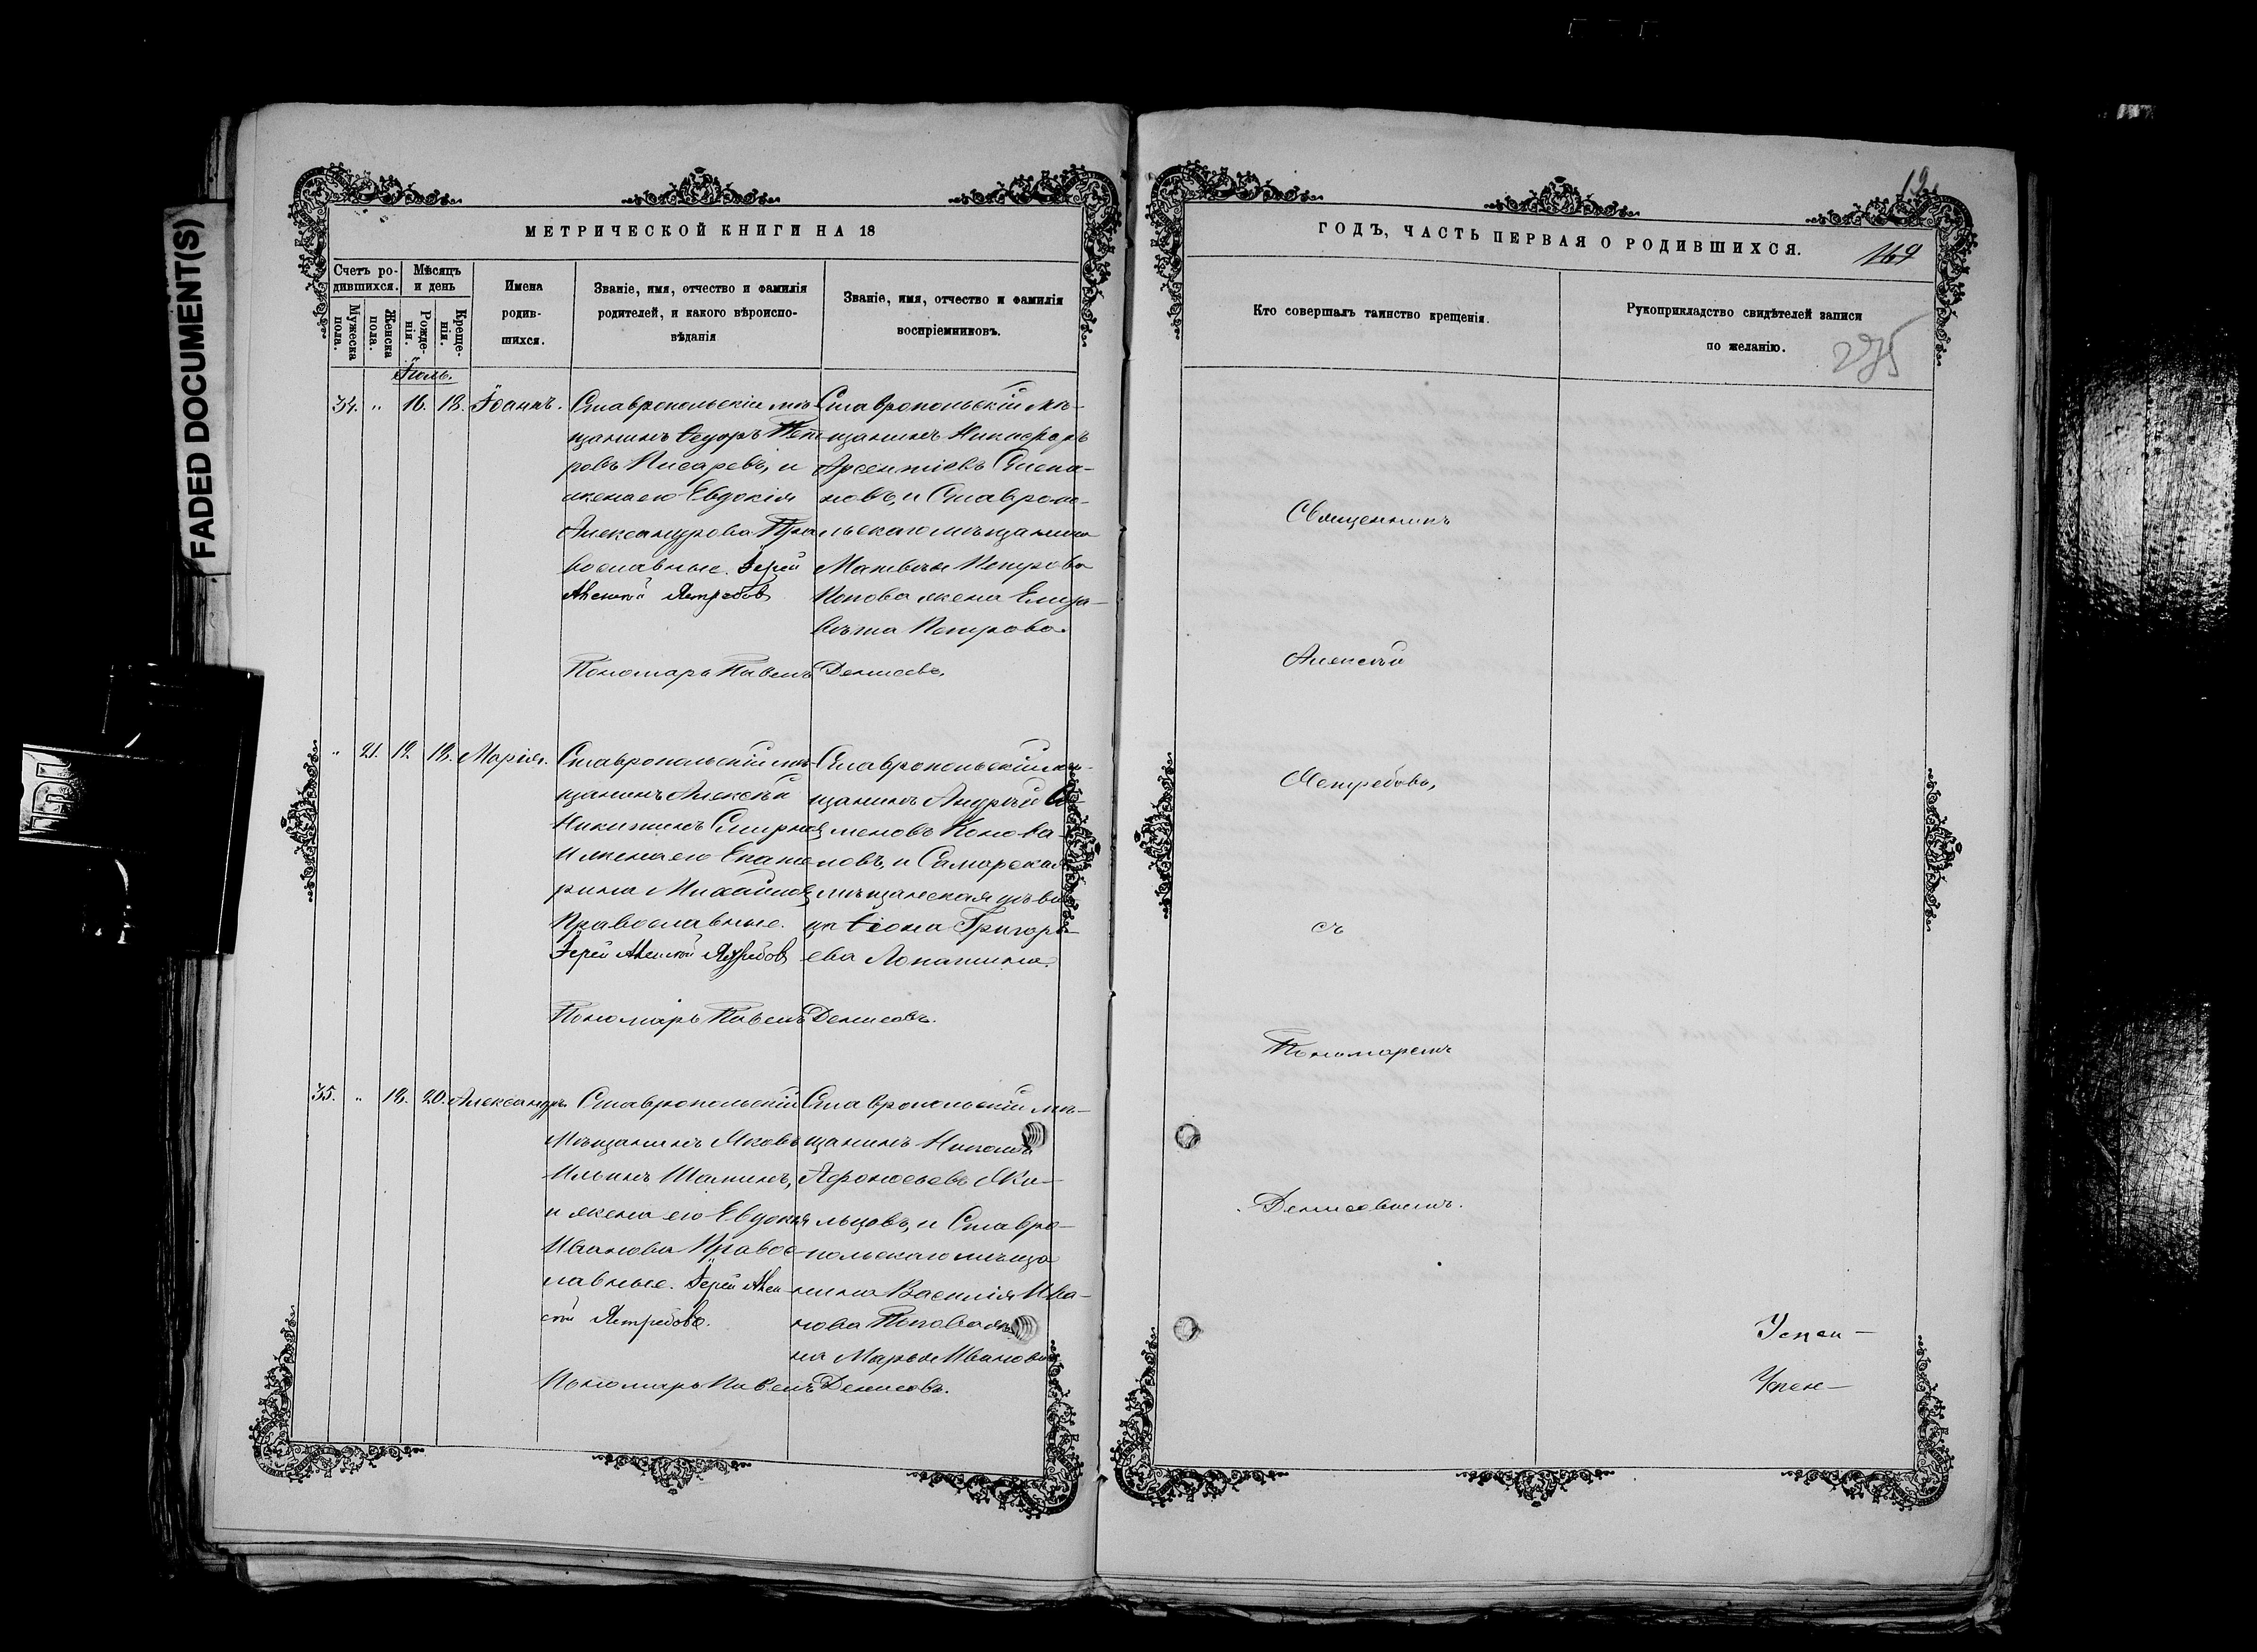 FADED DOCUMENT(S)
МЕТРИЧЕСКОЙ КНИГИ НА 18
Счетъ ро-
дившихся.
Мѣсяцъ
и день
Мужеска
пола.
Женска
пола.
Рожде-
нія.
Креще-
нія.
Имена
родив-
шихся.
Званіе, имя, отчество и фамилія
родителей, и какого вѣроиспо-
вѣданія
Званіе, имя, отчество и фамилія
воспріемниковъ.
Іюль.
34. " 16. 18. Іоаннъ.
Ставропольскій мѣ-
щанинъ Ѳедоръ Пет-
ровъ Писаревъ, и
жена его Евдокія
Александрова Пра-
вославные. Іерей
Алексѣй Ястребовъ
Ставропольскій мѣ-
щанинъ Никифоръ
Арсентіевъ Степа-
новъ, и Ставропо-
льскаго мѣщанина
Матвѣя Петрова
Попова жена Елиза-
вѣта Петрова.
Пономарь Павелъ Денисовъ.
" 21. 12. 18. Марія.
Ставропольскій мѣ-
щанинъ Алексѣй
Никитинъ Смирнов
и жена его Екате-
рина Михайлов
Православные.
Іерей Алексѣй Ястребовъ
Ставропольскій мѣ-
щанинъ Андрей Се-
меновъ Конова-
ловъ, и Самарская
мѣщанская дѣви-
ца Ѳіона Григорь-
ева Лопатина.
Пономарь Павелъ Денисовъ.
35. " 18. 20. Александръ.
Ставропольскій
Мѣщанинъ Яковъ
Ильинъ Шанинъ,
и жена его Евдокія
Иванова Правос-
лавные. Іерей Алек-
сѣй Ястребовъ.
Ставропольскій мѣ-
щанинъ Николай
Афонасьевъ Жи-
льцовъ, и Ставро-
польскаго мѣща
нина Василія Ива-
нова Попова же
на Марья Иванова
Пономарь Павелъ Денисовъ.
ГОДЪ, ЧАСТЬ ПЕРВАЯ О РОДИВШИХСЯ.
169
Кто совершалъ таинство крещенія.
Рукоприкладство свидѣтелей записи
по желанію.
275
Священникъ
Алексѣй
Ястребовъ,
съ
Пономаремъ
Денисовымъ.
Успен-
Успен-